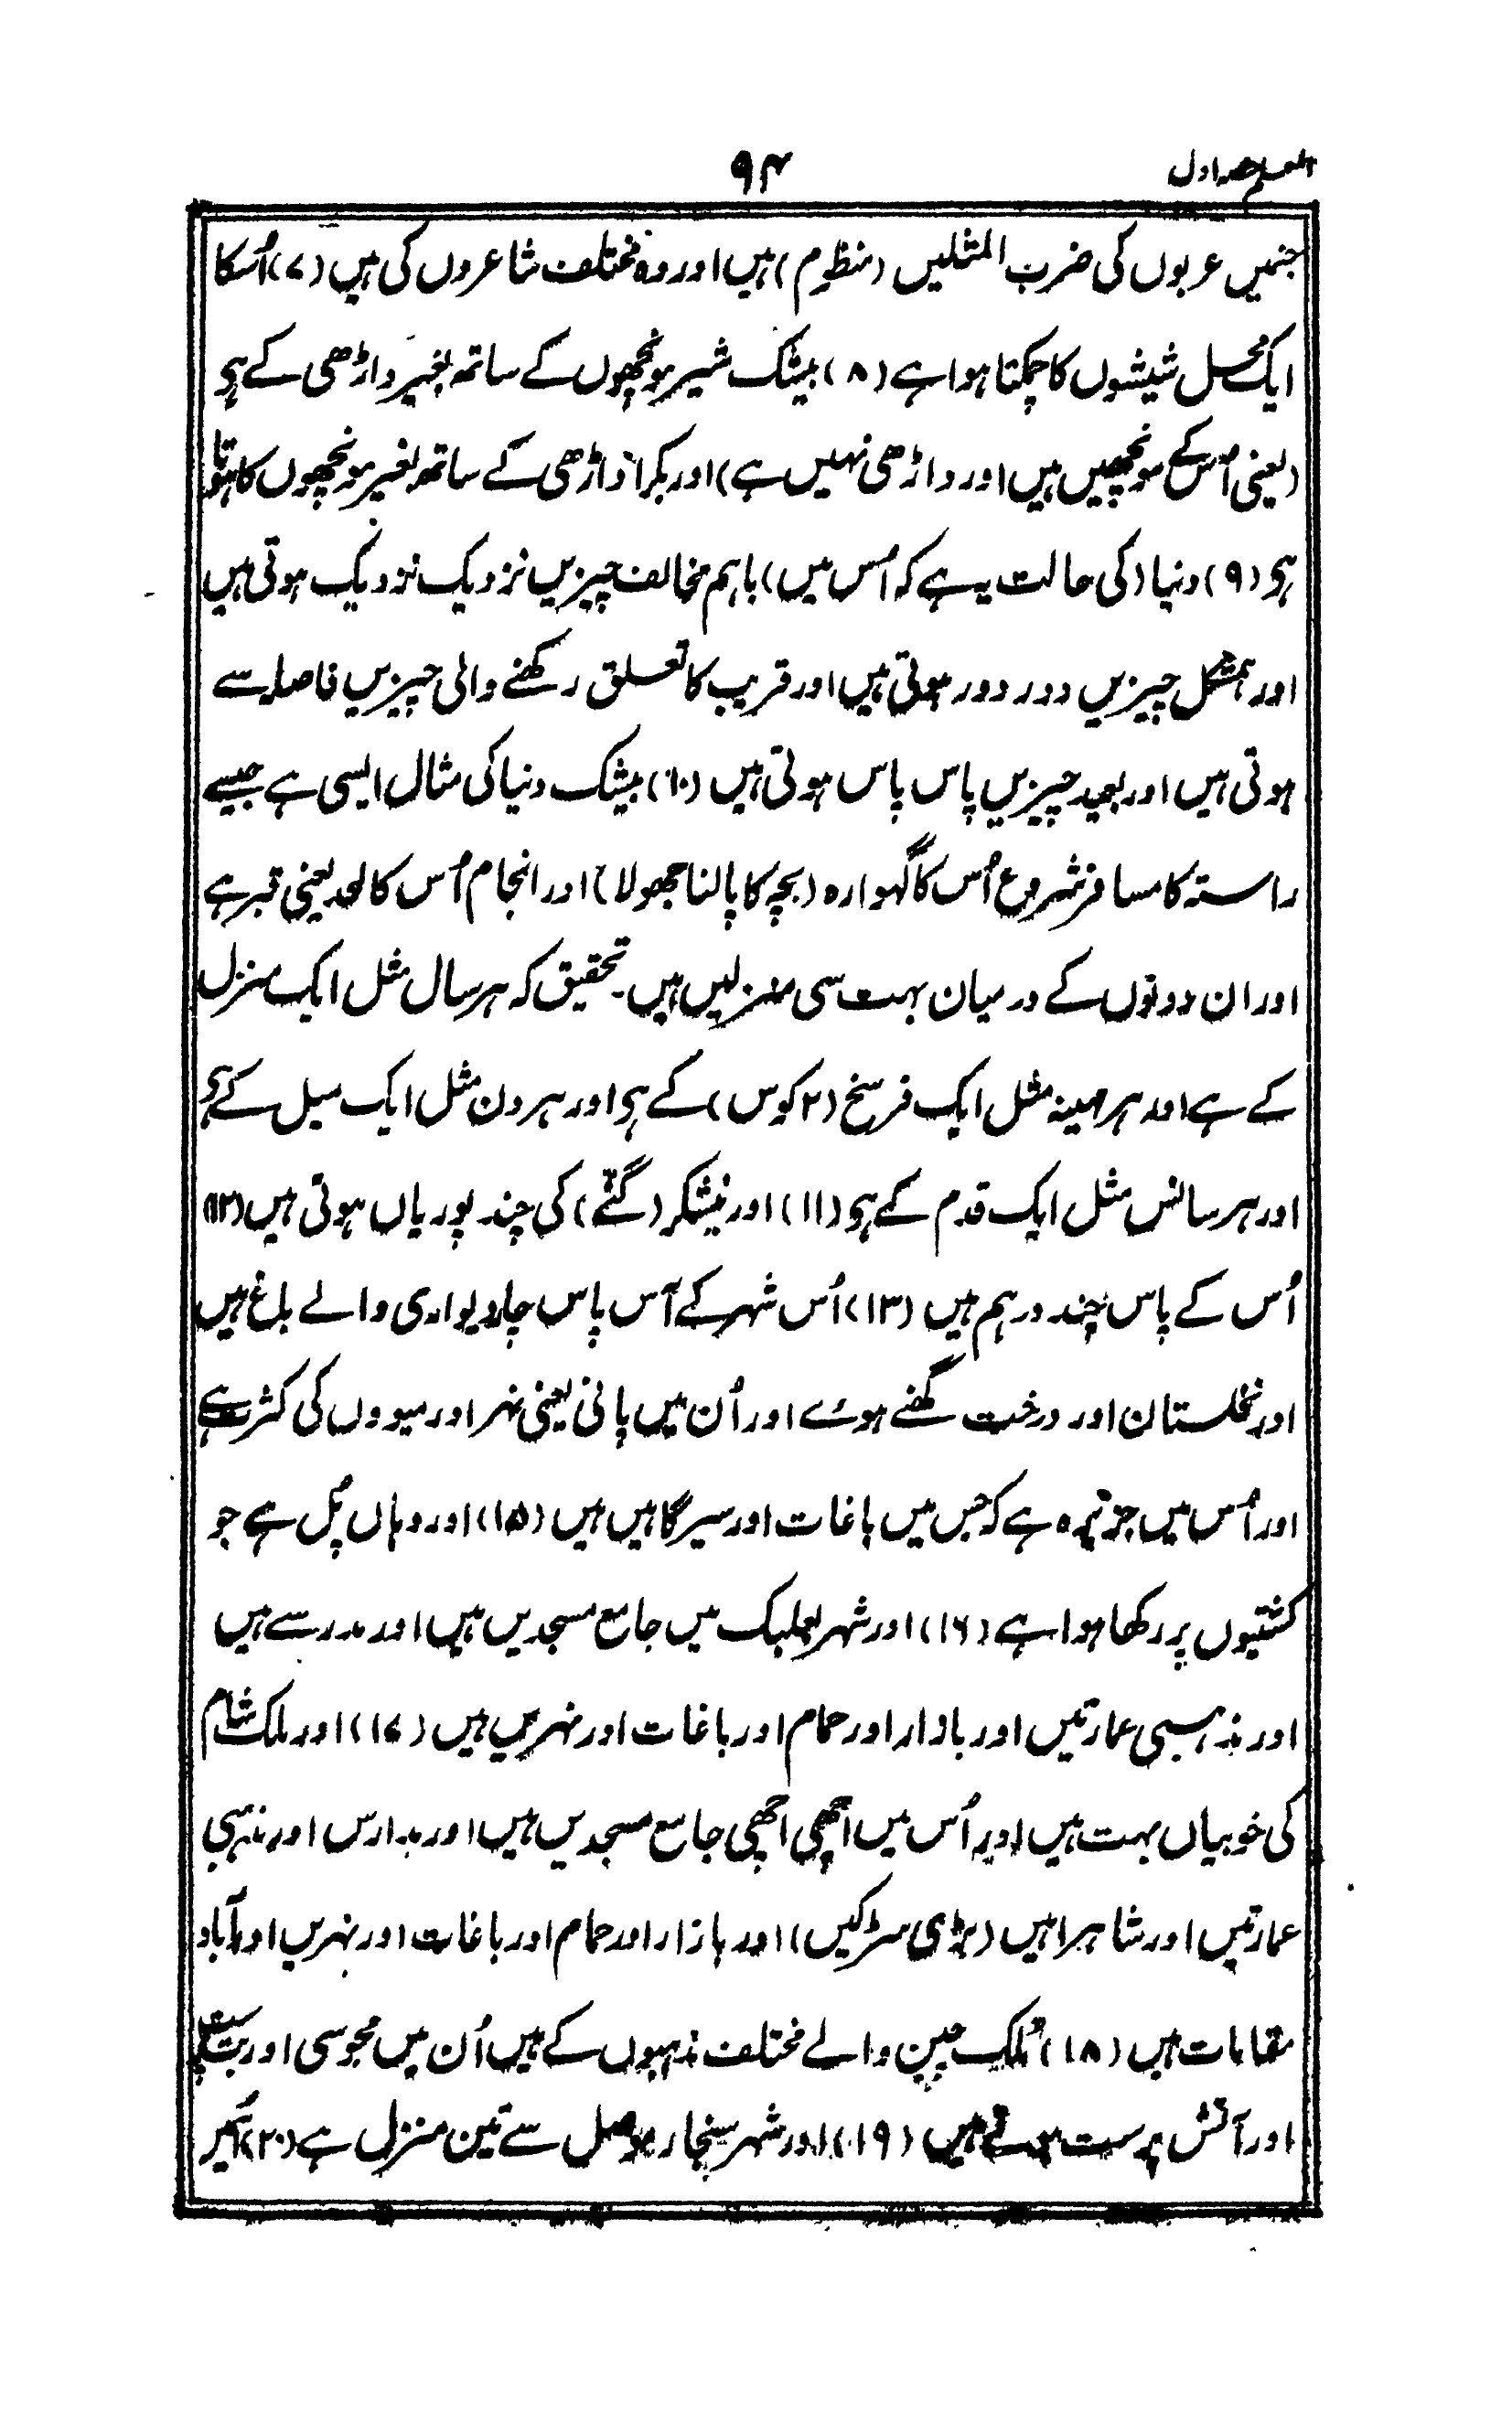 المعلم حصہ اول
۹۴
جنمیں عربوں کی ضرب المثلیں (منظوم) ہیں اور وہ مختلف شاعروں کی ہیں (۷) اُسکا
ایک محل شیشوں کا چمکتا ہوا ہے (۸) بیشک شیر مونچھوں کے ساتھ بغیر داڑھی کے ہی
(یعنی اُس کے مونچھیں ہیں اور داڑھی نہیں ہے) اور بکرا داڑھی کے ساتھ بغیر مونچھوں کا ہوتا
ہی (۹) دنیا (کی حالت یہ ہے کہ اُس میں) باہم مخالف چیزیں نزدیک نزدیک ہوتی ہیں
اور ہمشکل چیزیں دور دور ہوتی ہیں اور قریب کا تعلق رکھنے والی چیزیں فاصلہ سے
ہوتی ہیں اور بعید چیزیں پاس پاس ہوتی ہیں (۱۰) بیشک دنیا کی مثال ایسی ہے جیسے
راستہ کا مسافر شروع اُس کا گہوارہ (بچہ کا پالنا جھولا) اور انجام اُس کا لحد یعنی قبر ہے
اور ان دونوں کے درمیان بہت سی منزلیں ہیں۔ تحقیق کہ ہر سال مثل ایک منزل
کے ہے اور ہر مہینہ مثل ایک فرسخ (۲ کوس) کے ہی اور ہر دن مثل ایک میل کے ہی
اور ہر سانس مثل ایک قدم کے ہی (۱۱) اور نیشکر (گنّے) کی چند پوریاں ہوتی ہیں (۱۲)
اُس کے پاس چند درہم ہیں (۱۳) اُس شہر کے آس پاس چار دیواری والے باغ ہیں
اور نخلستان اور درخت گھنے ہوئے اور اُن میں پانی یعنی نہر اور میووں کی کثرت ہے
اور اُس میں جزیرہ ہے کہ جس میں باغات اور سیرگاہیں ہیں (۱۵) اور وہاں پُل ہے جو
کشتیوں پر رکھا ہوا ہے (۱۶) اور شہر بعلبک میں جامع مسجدیں ہیں اور مدرسے ہیں
اور مذہبی عمارتیں اور بازار اور حمام اور باغات اور نہریں ہیں (۱۷) اور ملک شام
کی خوبیاں بہت ہیں اور اُس میں اچھی اچھی جامع مسجدیں ہیں اور مدارس اور مذہبی
عمارتیں اور شاہراہیں (بڑی سڑکیں) اور بازار اور حمام اور باغات اور نہریں اور آباد
مقامات ہیں (۱۸) مُلک چین والے مختلف مذہبوں کے ہیں اُن میں مجوسی اور بت پرست
اور آتش پرست ہوتے ہیں (۱۹) اور شہر سنجار موصل سے تین منزل ہے (۲۰)